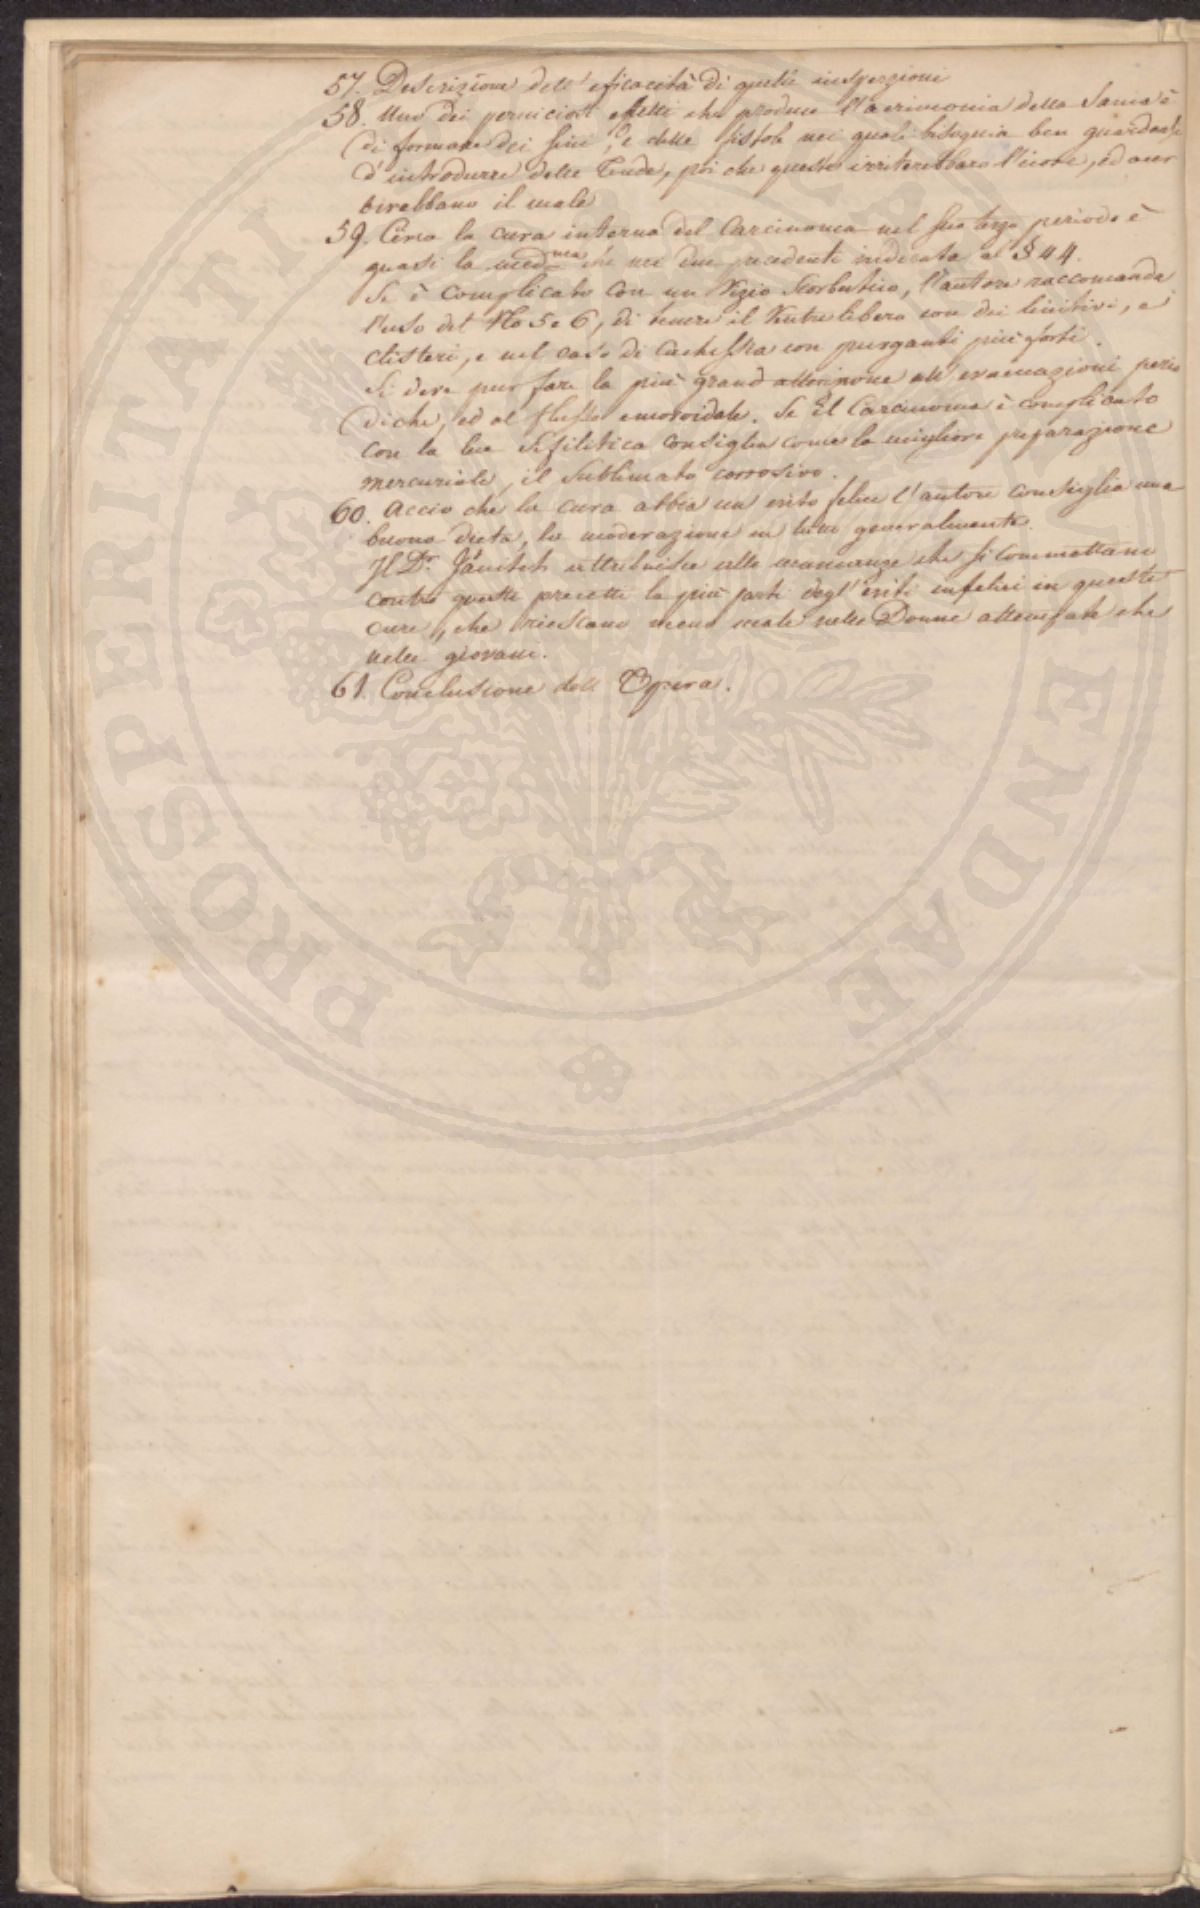 57. Descrizione dell'eficacità di queste inspersioni
58. Uno dei perniciosi effetti che produce l'acrimonia della Sania è
di formare dei sini, e delle fistole nei quali bisognia ben guardarsi
d'introdurre delle Tende, poi che queste irriterebbaro l'icore, ed acer
birebbano il male
59. Circa la cura interna del Carcinoma nel suo terzo periodo è
quasi la med.ma che nei due precedenti indicata al § 44.
Se è Complicato con un Vizio Scorbutico, l'autore raccomanda
l'uso del No 5 e 6, di tenere il Ventre libero con dei linitivi, e
clisteri, e nel caso di Cachessia con purganti piú forti.
Si deve pur fare la piú grand attenzione all'evacuazioni perio
diche, ed al flusso emoroidale. Se il Carcinoma è complicato
con la lue Sifilitica Consiglia come la migliore preparazione
mercuriale, il Sublimato corrosivo.
60. Accio che la cura abbia un esito felice l'autore Consiglia una
buona dieta, la moderazione in tutto generalmente.
Il Dr. Jänitsh attribuisce alle mancanze che si commettano
contro queste precetti la piú parti degl'esiti infelici in queste
cure, che riescano meno male nelle Donne attempate che
nelle giovani.
61. Conclusione dell Opera.
PROSPERITATI PUBLICAE AUGENDAE